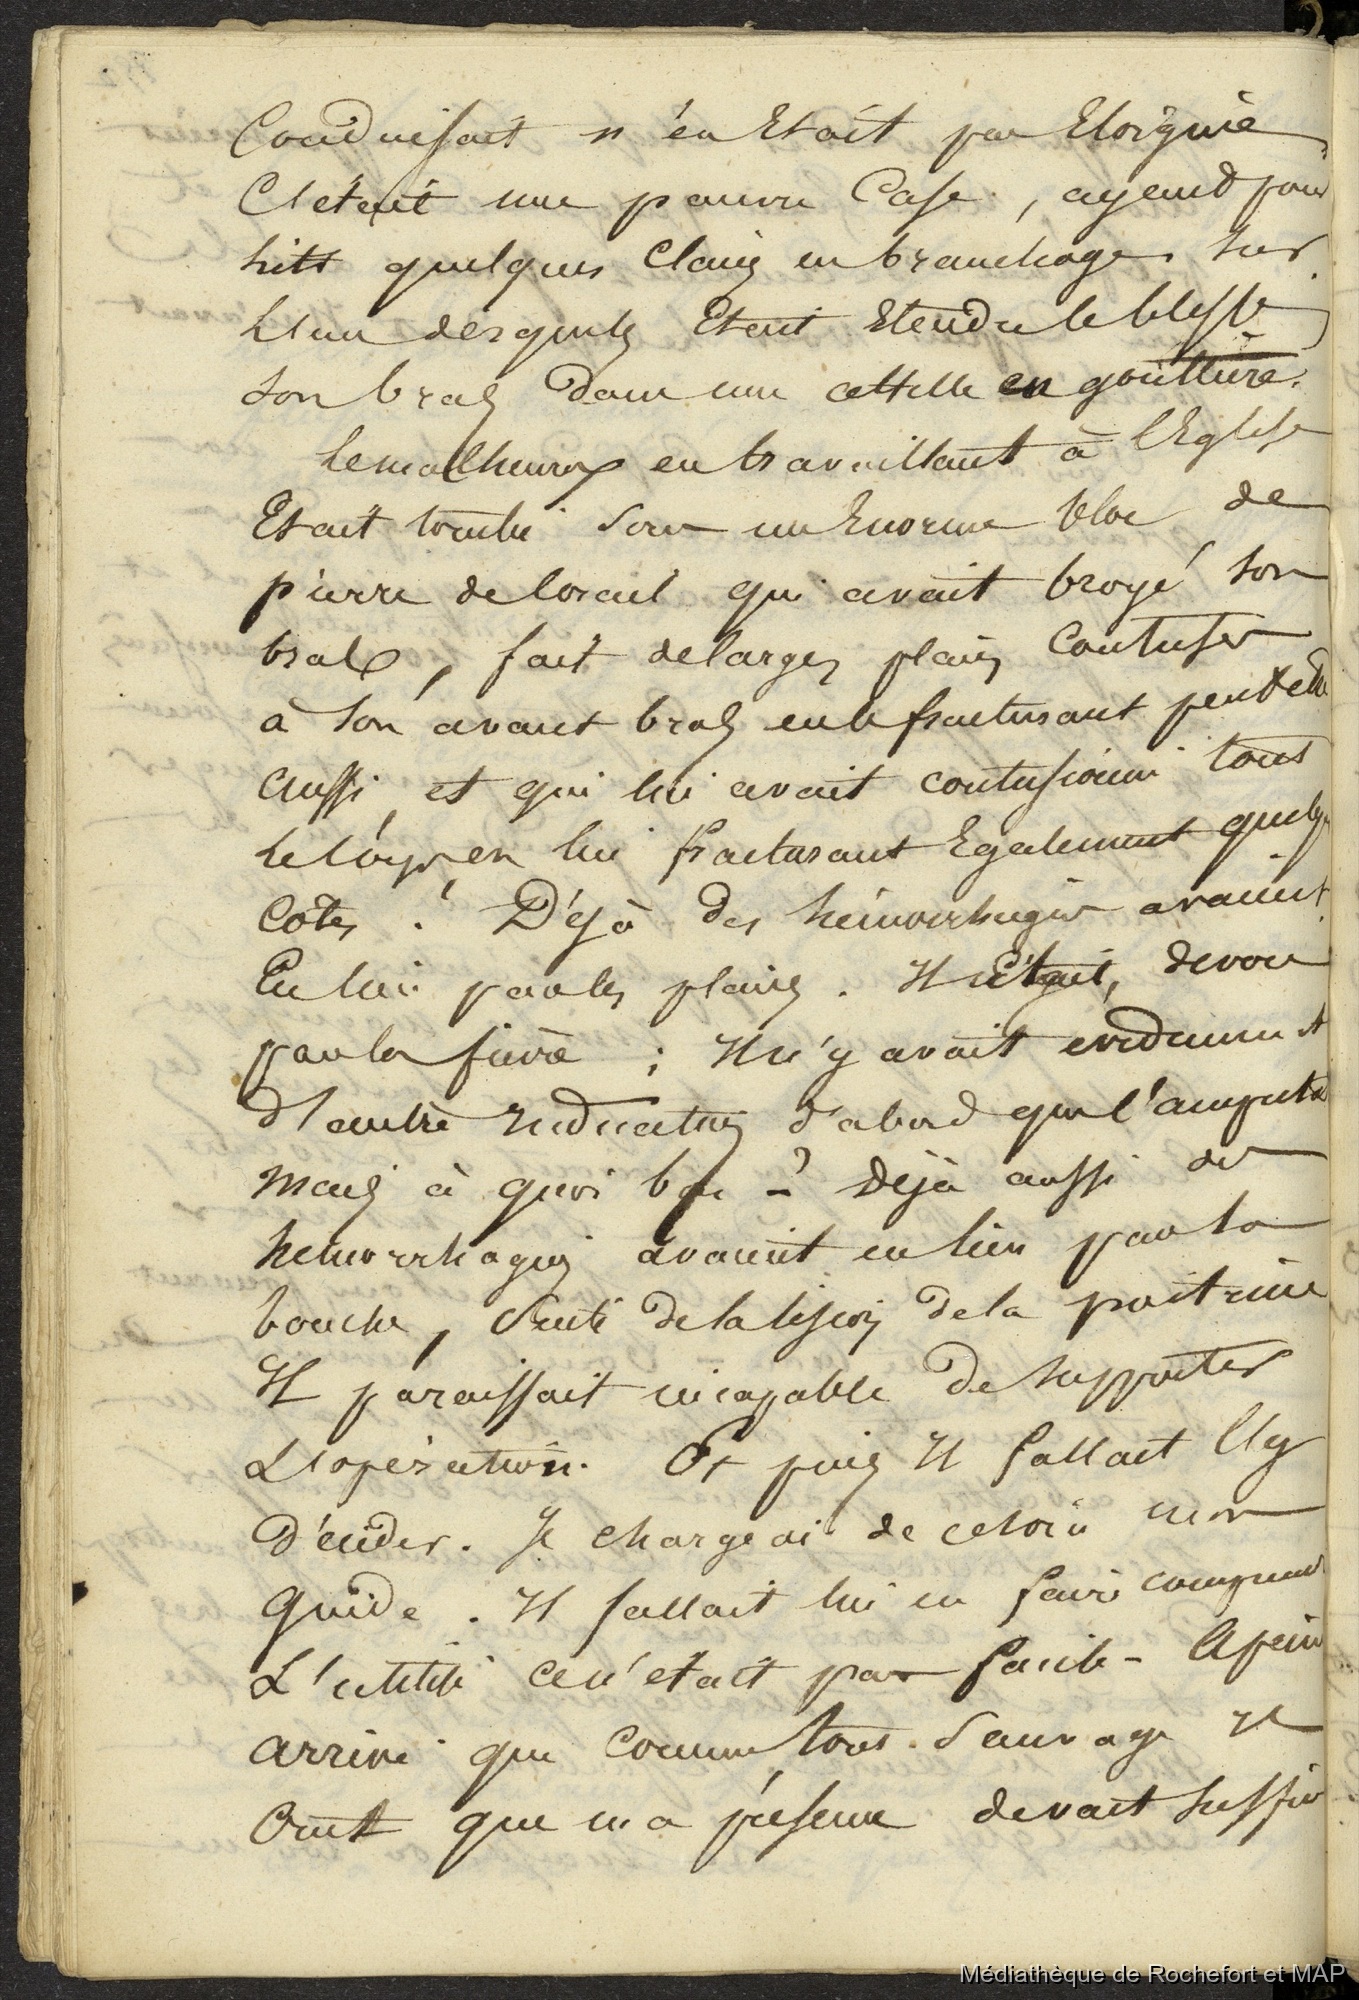 Conduisait n'en Etait pas Eloignée
C'était une pauvre Case, ayant pour
lits quelques claies en branchages sur
l'un desquels Etait Etendu le blessé
son bras dans une attelle en gouttière.
Le malheureux en travaillant à l'Eglise
Etait tombé sous un Enorme bloc de
pierre de corail qui avait broyé son
bras, fait de larges plaies contuses
à son avant bras en le fracturant peut etre
aussi, et qui lui avait contusionné tout
le corps en lui fracturant Egalement quelques
côtes ! Déjà des hémorrhagies avaient
Eu lieu par les plaies. Il était, dévoré
par la fièvre ; Il n'y avait evidemment
d'autre Indication d'abord que l'amputation
mais à quoi bon - ? Déjà aussi des
hemorrhagies avaient eu lieu par la
bouche, suite de la lésion de la poitrine
Il paraissait incapable de supporter
L'opération. Et puis Il fallait l'y
décider. Je chargeai de ce soin mon
guide. Il fallait lui en faire comprendre
L'utilité ce n'etait pas facile - A peine
arrivé que comme tout sauvage Il
Crut que ma présence devait suffire
Médiathèque de Rochefort et MAP